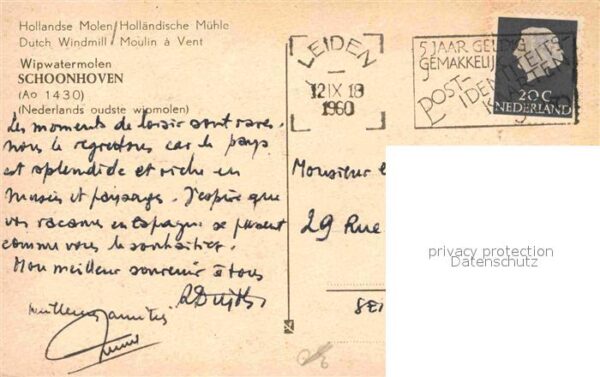 Hollandse Molen/Holländische Mühle
Dutch Windmill/Moulin à Vent
Wipwatermolen
SCHOONHOVEN
(Ao 1430)
(Nederlands oudste wipmolen)
Les moments de loisir sont rares
nous le regrettons car le pays
est splendide et riche en
musées et paysages. J'espère que
vos vacances en Espagne se passent
comme vous le souhaitiez.
Mon meilleur souvenir à tous
meilleures amitiés
LEIDEN
12 IX 18
1960
5 JAAR GELDIG
GEMAKKELIJK
POST-
IDENTITEITS-
KAARTEN
20 C
NEDERLAND
Monsieur
29 Rue
privacy protection
Datenschutz